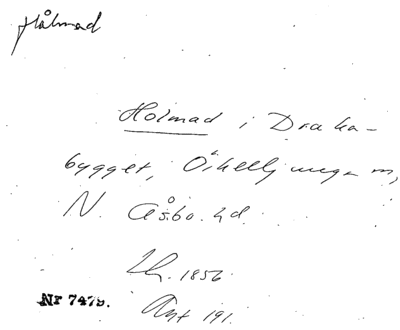 Hålmad
Holmad i Draka-
bygget, Örkelljunga sn,
N. Åsbo hd.
Lh. 1856
Nr 7479.
Ant 191.